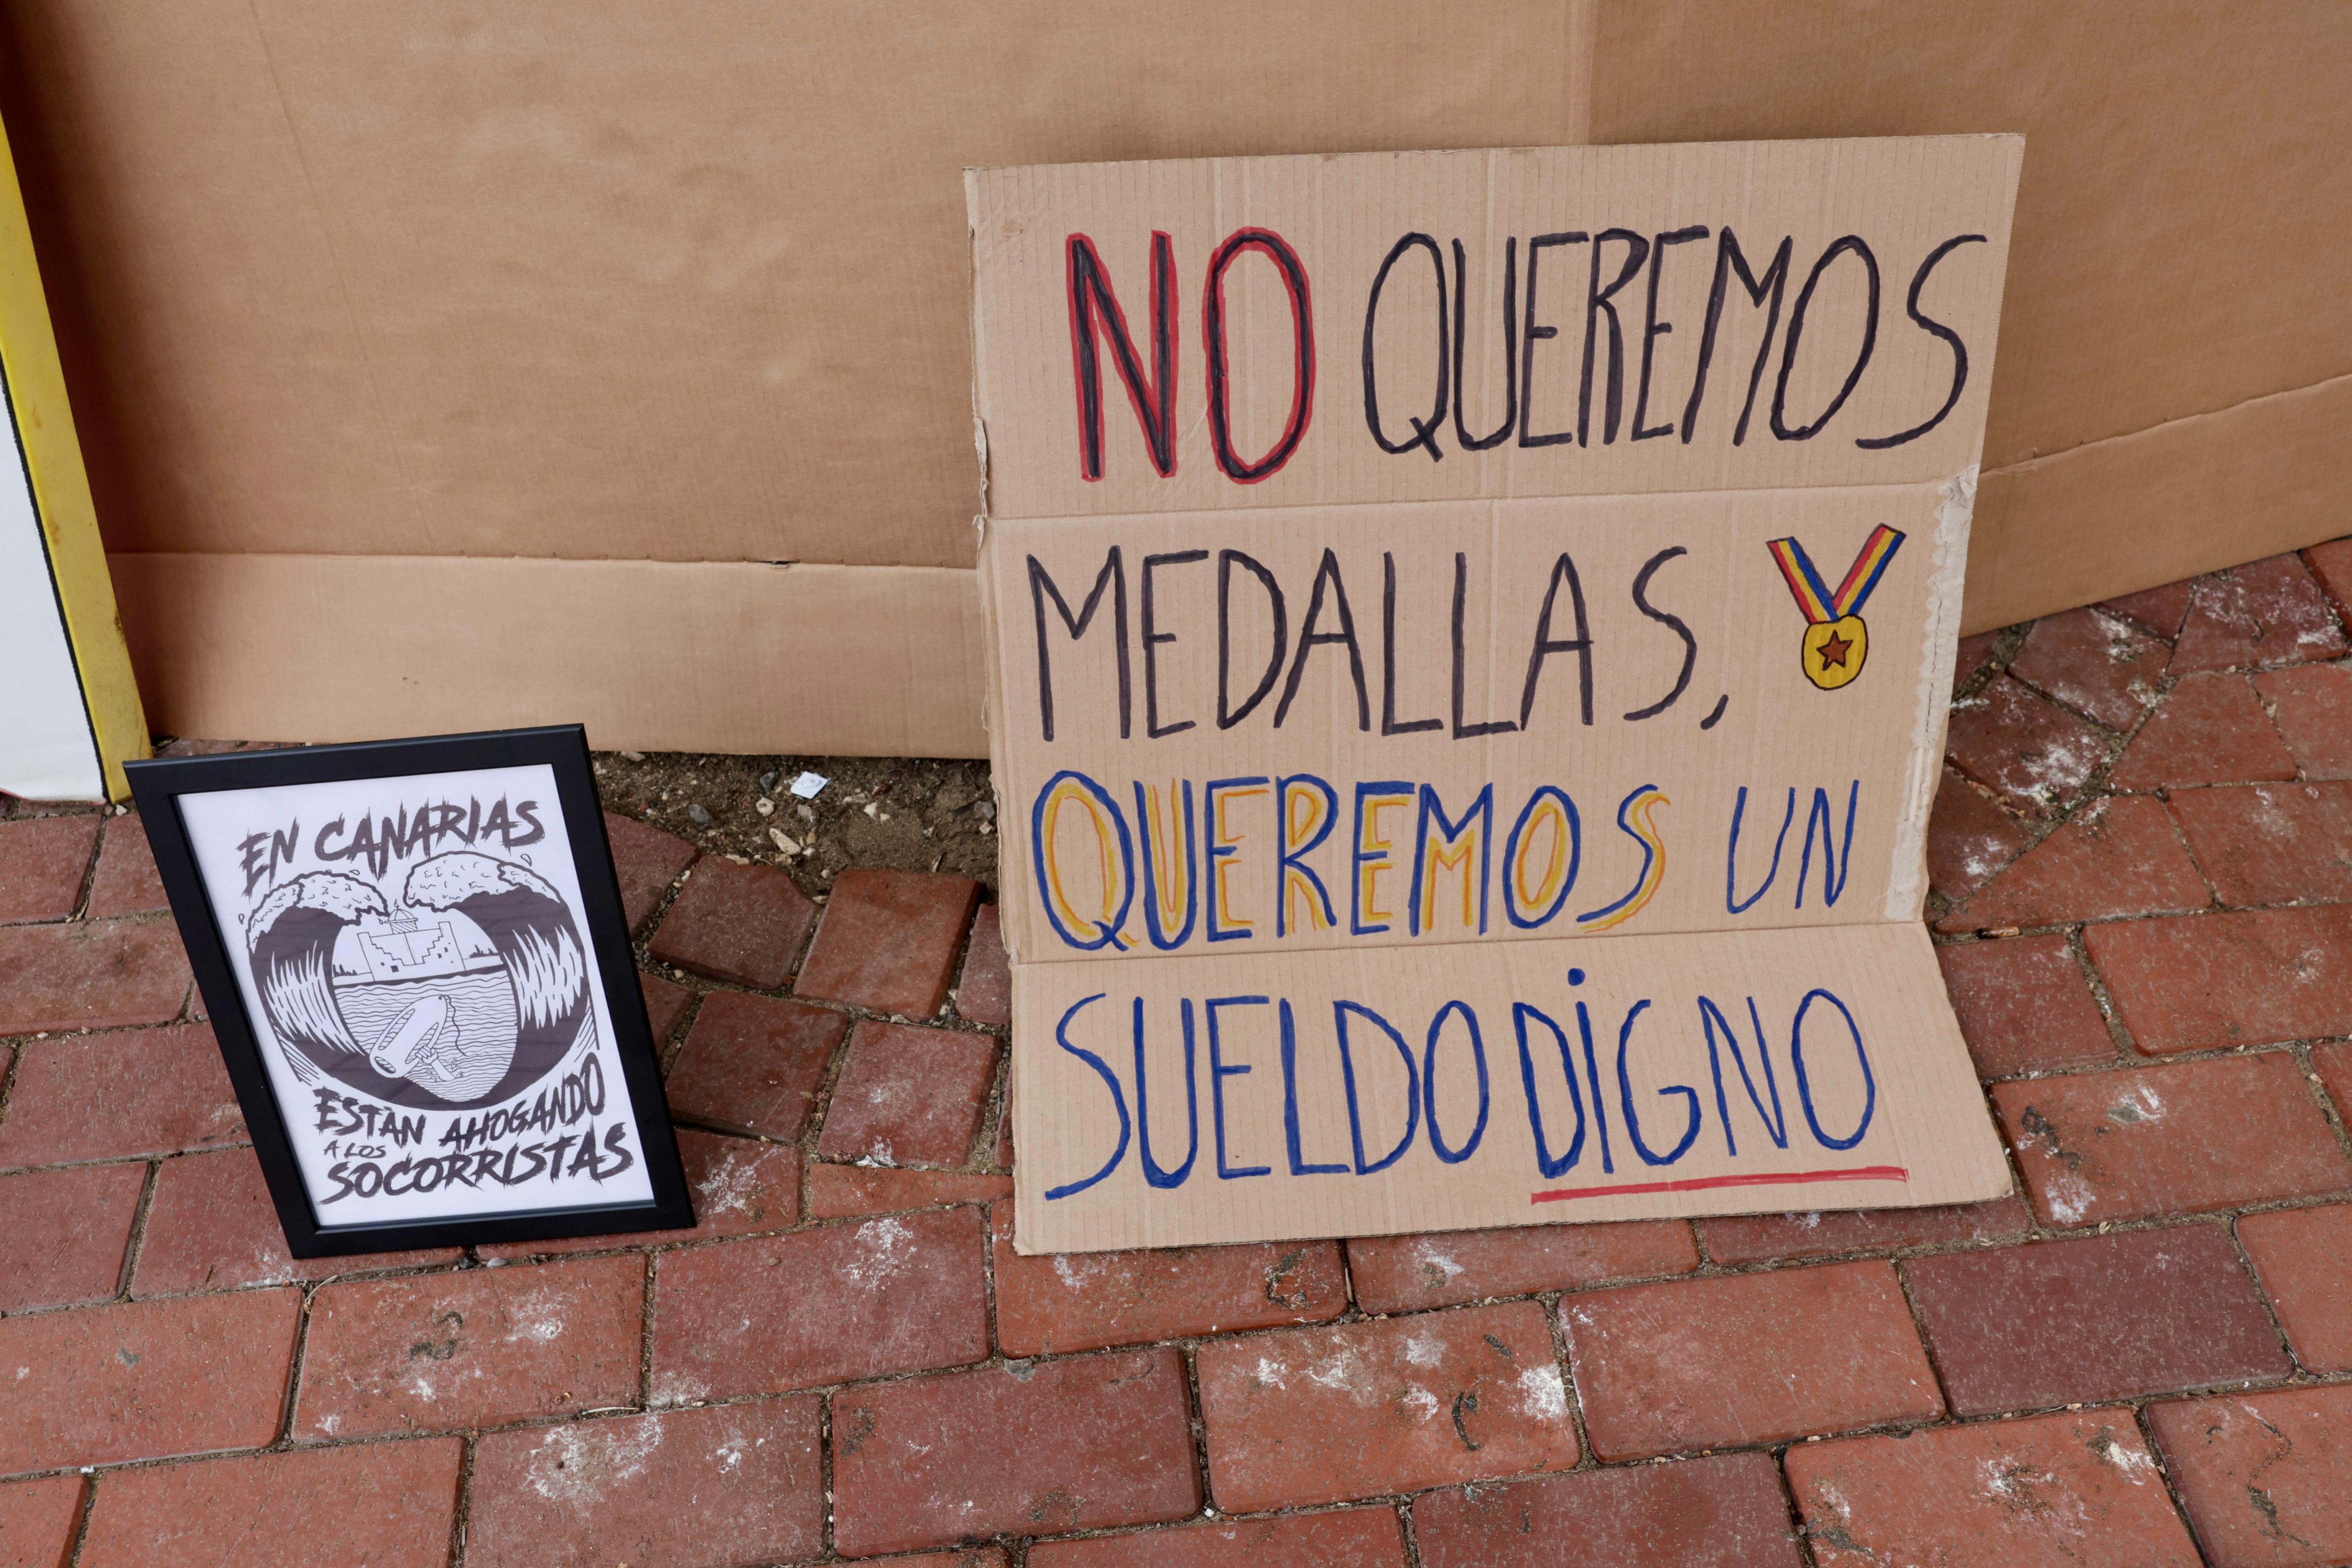 EN CANARIAS
ESTÁN AHOGANDO
A LOS
SOCORRISTAS
NO QUEREMOS
MEDALLAS,
QUEREMOS UN
SUELDO DİGNO